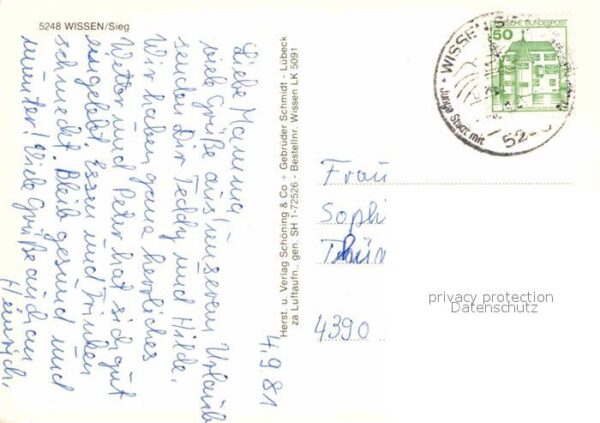 5248 WISSEN/Sieg
4.9.81
Liebe Mamma
viele Grüße aus unserem Urlaub
senden Dir Teddy und Hilde.
Wir haben ganz herrliches
Wetter und Peter hat sich gut
eingelebt. Essen und Trinken
schmeckt. Bleib gesund und
munter! Viele Grüße auch an
Heinrich.
Herst. u. Verlag Schöning & Co + Gebrüder Schmidt - Lübeck
za Luftaufn., gen. SH 1-72526 - Bestellnr. Wissen LK 5091
DEUTSCHE BUNDESPOST
50
WISSEN
Junge Stadt mit
Frau
Sophi
4390
privacy protection
Datenschutz